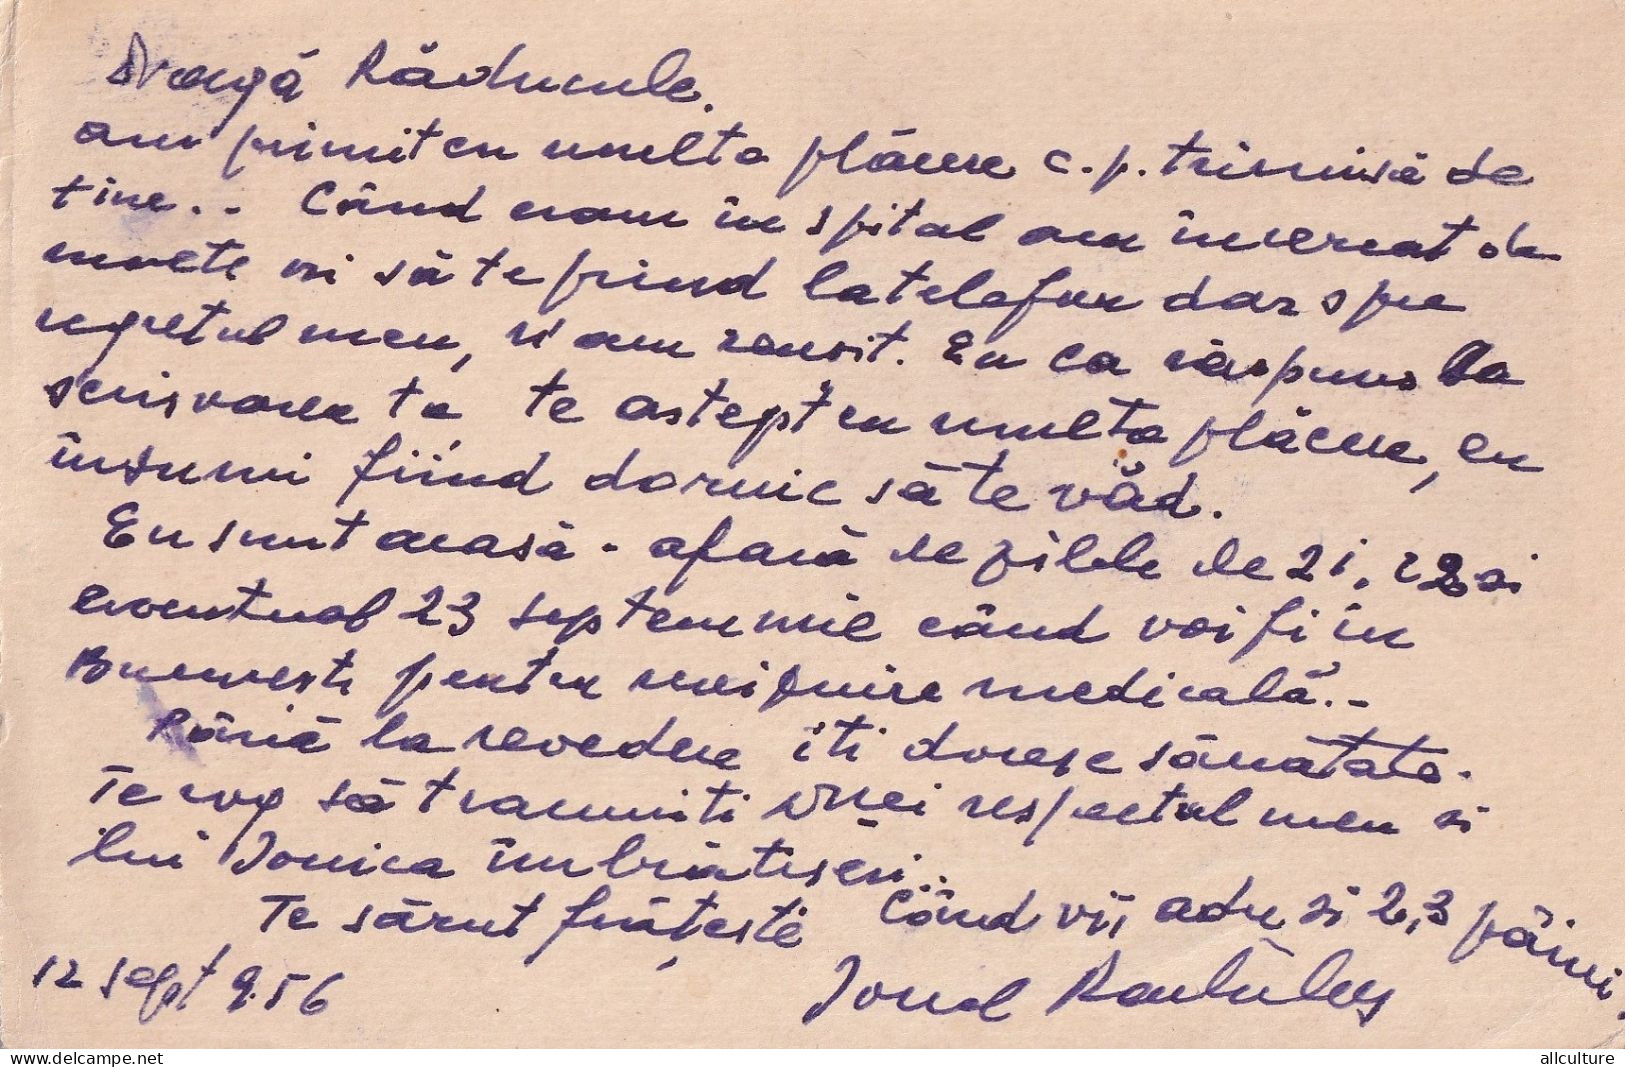 Dragă Răducule.
am primit cu multa plăcere c.p. trimisă de
tine.. Când eram în spital am încercat de
multe ori să te prind la telefon dar spre
regretul meu, n'am reusit. Eu ca răspuns la
scrisoarea ta te astept cu multa plăcere, eu
însumi fiind dornic să te văd.
Eu sunt acasă - afară de zilele de 21, 22 si
eventual 23 septemvrie când voi fi în
Bucuresti pentru medicală.-
Până la revedere iti doresc sănătate.
Te rog să transmiti respectul meu si
lui Ionica îmbrătiseri..
Te sărut frăteste Când vii, adu si 2,3 pâini.
12 sept 956 Ionel
delcampe.net
allculture